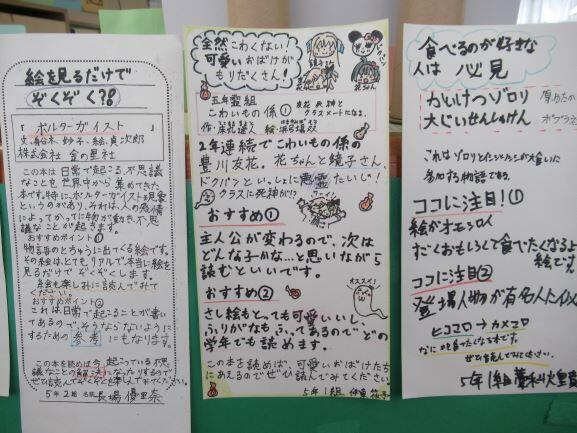 絵を見るだけで
ぞくぞく?!
『ポルターガイスト』
文.船木 妙子・絵.真次郎
株式会社 金の星社
この本は日常で起こる、不思議
なことを世界中から集めてきた
本です。特に、ポルターガイスト現象
というのがあり、それは人の感情
によってかってに物が動き、不思
議なことが起きます。
おすすめポイント①
物語のとちゅうに出てくる絵です。
その絵は、とても、リアルで、本当に絵を
見るだけで ぞくぞくします。
絵も楽しみに読んでみて
ください。
おすすめポイント②
これは日常で起こることが書い
てあるので、そうならないように
するための 参考 にもなります。
この本を読めば、今、起こっている不思
議なことの解決になったりするので
ぜひ読んでぞくぞくを楽しんでみてください。
5年2組 名前 長場 優里奈
全然こわくない!
可愛いおばけが
もりだくさん!
花ちゃん
五年霊組
こわいもの係①
友花 死神と
クラスメートになる。
作・床丸迷人 絵・浜弓場双
2年連続でこわいもの係の
豊川友花。花ちゃんと鏡子さん、
ドクパンといっしょに悪霊たいじ!
クラスに死神が!?
おすすめ①
主人公が変わるので、次は
どんな子かな…と思いながら
読むといいです。
おすすめ②
オススメ!
さし絵もとっても可愛いいし、
ふりがなもふってあるので どの
学年でも読めます。
この本を読めば、可愛いおばけたち
にあえるのでぜひ読んでみてください。
5年1組 伊東
食べるのが好きな
人は 必見
かいけつゾロリ
大じいせんしゅけん
原
ポプラ
これはゾロリとイシシとノシシが大食いに
参加する物語である。
ココに注目!①
絵がオモシロイ
すごくおもしろくて食べたくなるよ
絵です
ココに注目②
登場人物が有名人に
ヒコマロ→カメマロ
ぜひ読んでみてください。
5年1組